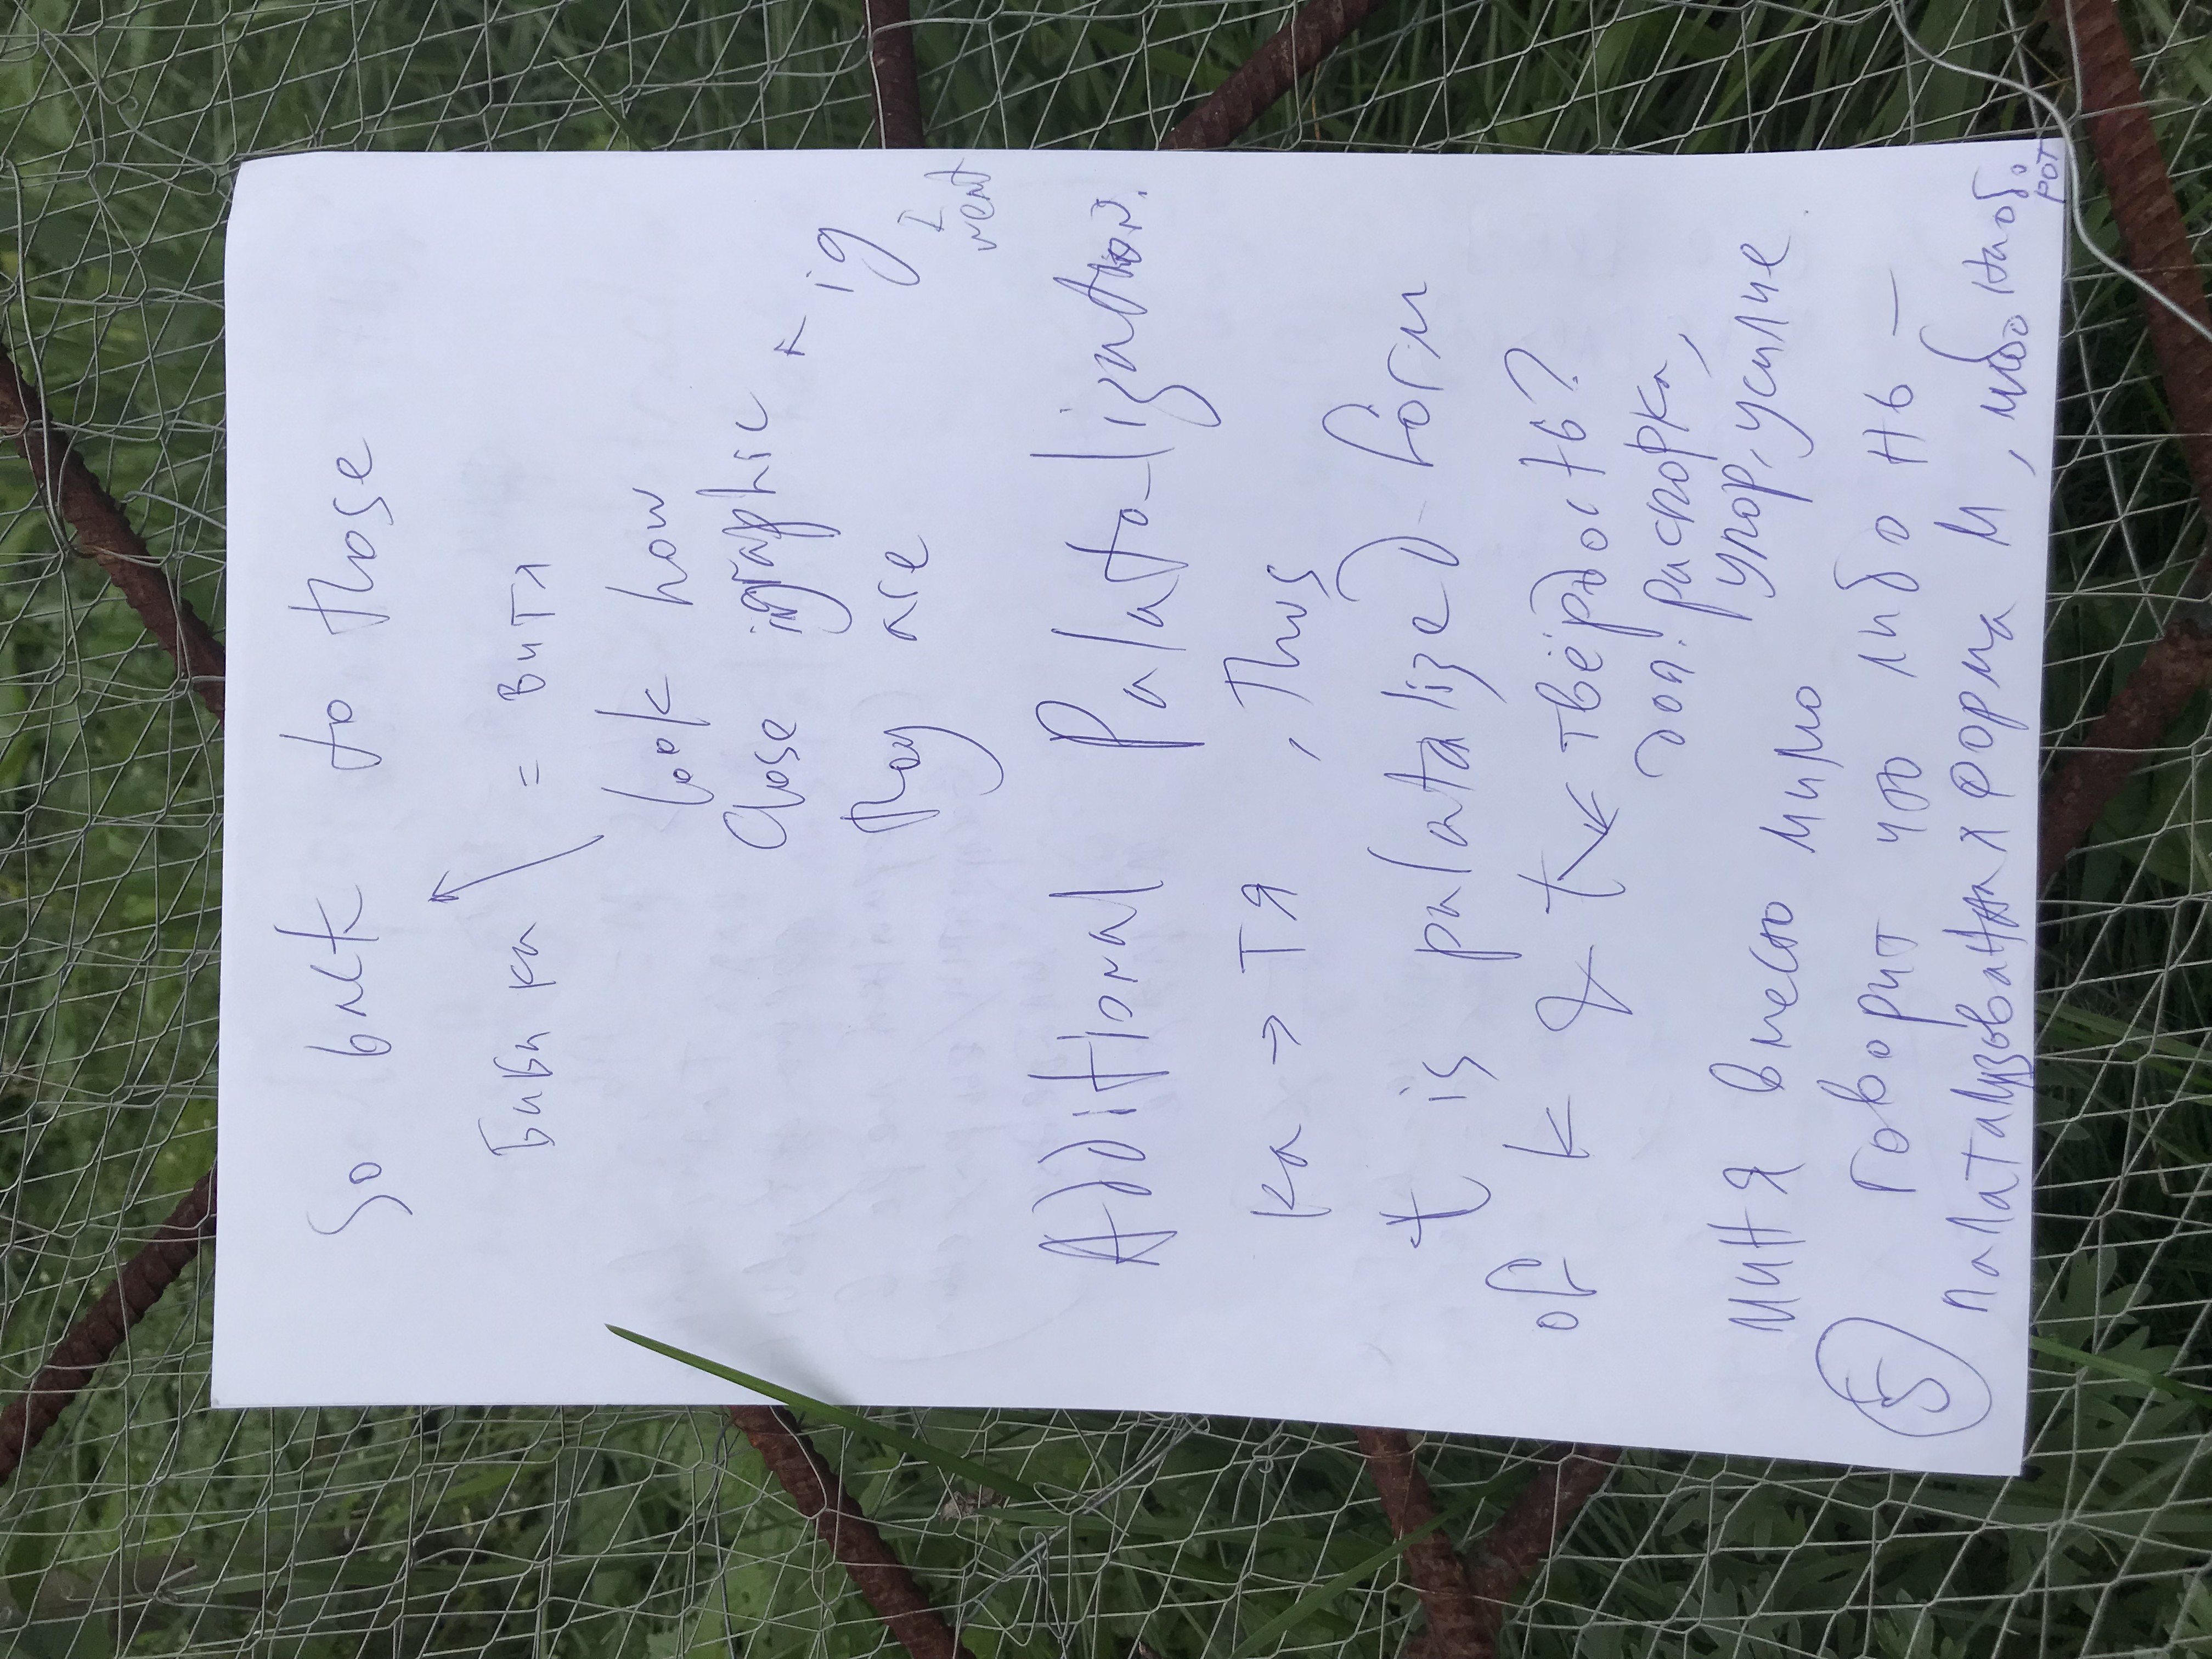 So back to those
Биби ка = витя
look how
close igraphic
ig
they are
I
went
Additional Palatalization.
ка → тя , thus
t is palatalized form
of k & t твёрдость?
доп. распорка,
упор, усилие
миня вместо мимо
говорит что либо нь —
5
палатализованная форма м, либо наобо
рот